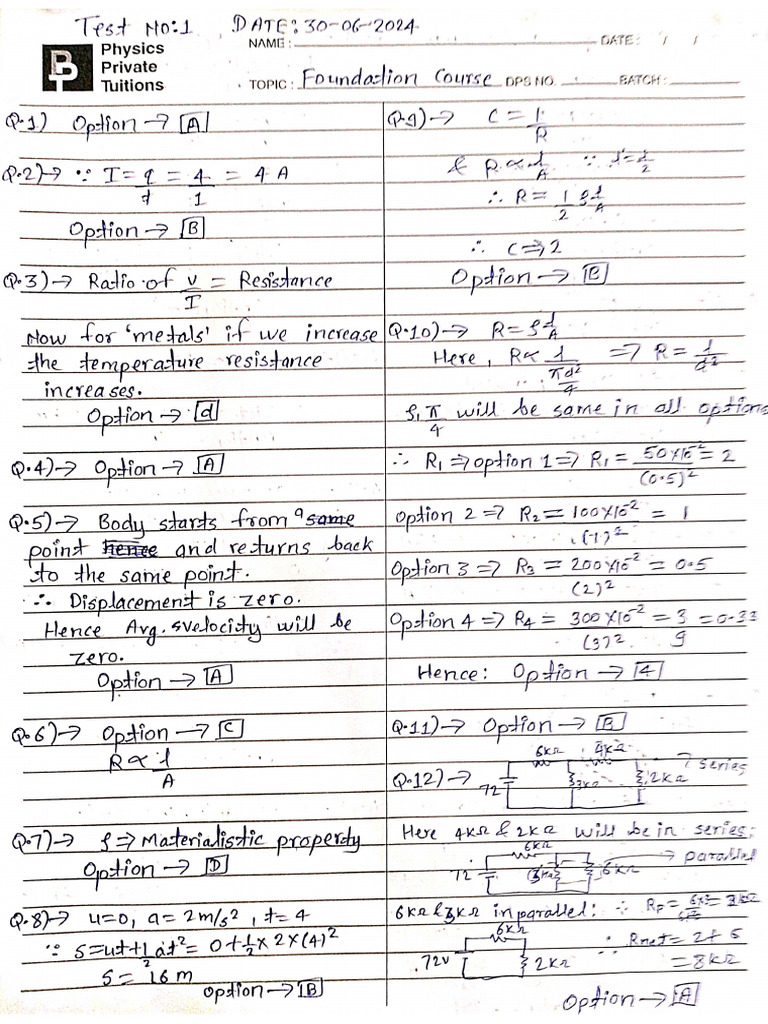 Test No:1 DATE: 30-06-2024
Physics
Private
Tuitions
NAME: DATE: / /
TOPIC: Foundation Course DPS NO. BATCH:
Q.1) Option → A
Q.2)→ ∵ I = q/t = 4/1 = 4 A
Option → B
Q.3)→ Ratio of V/I = Resistance
Now for 'metals' if we increase
the temperature resistance
increases.
Option → d
Q.4)→ Option → A
Q.5)→ Body starts from a same
point hence and returns back
to the same point.
∴ Displacement is zero.
Hence Avg. svelocity will be
zero.
Option → A
Q.6)→ Option → C
R ∝ l/A
Q.7)→ ρ ⇒ Materialistic property
Option → D
Q.8)→ u=0, a = 2m/s², t = 4
∵ S=ut+1/2 at² = 0+1/2×2×(4)²
S = 16 m
Option → B
Q.9)→ C = 1/R
& R ∝ l/A ∵ l' = l/2
∴ R = 1/2 ρl/A
∴ C ⇒ 2
Option → B
Q.10)→ R = ρl/A
Here, R ∝ 1/(πd²/4) ⇒ R = l/d²
ρ, π/4 will be same in all options
∴ R₁ ⇒ option 1 ⇒ R₁ = 50×10⁻²/(0.5)² = 2
Option 2 ⇒ R₂ = 100×10⁻²/(1)² = 1
Option 3 ⇒ R₃ = 200×10⁻²/(2)² = 0.5
Option 4 ⇒ R₄ = 300×10⁻²/(3)² = 3/9 = 0.33
Hence: Option → 4
Q.11)→ Option → B
6kΩ 4kΩ
Q.12)→ 72 3kΩ 2kΩ series
Here 4kΩ & 2kΩ will be in series:
6kΩ
72 3kΩ 6kΩ → parallel
6kΩ & 3kΩ in parallel: ∵ Rp =
6kΩ
72V 2kΩ ∴ Rnet = 2+6
= 8kΩ
Option → A